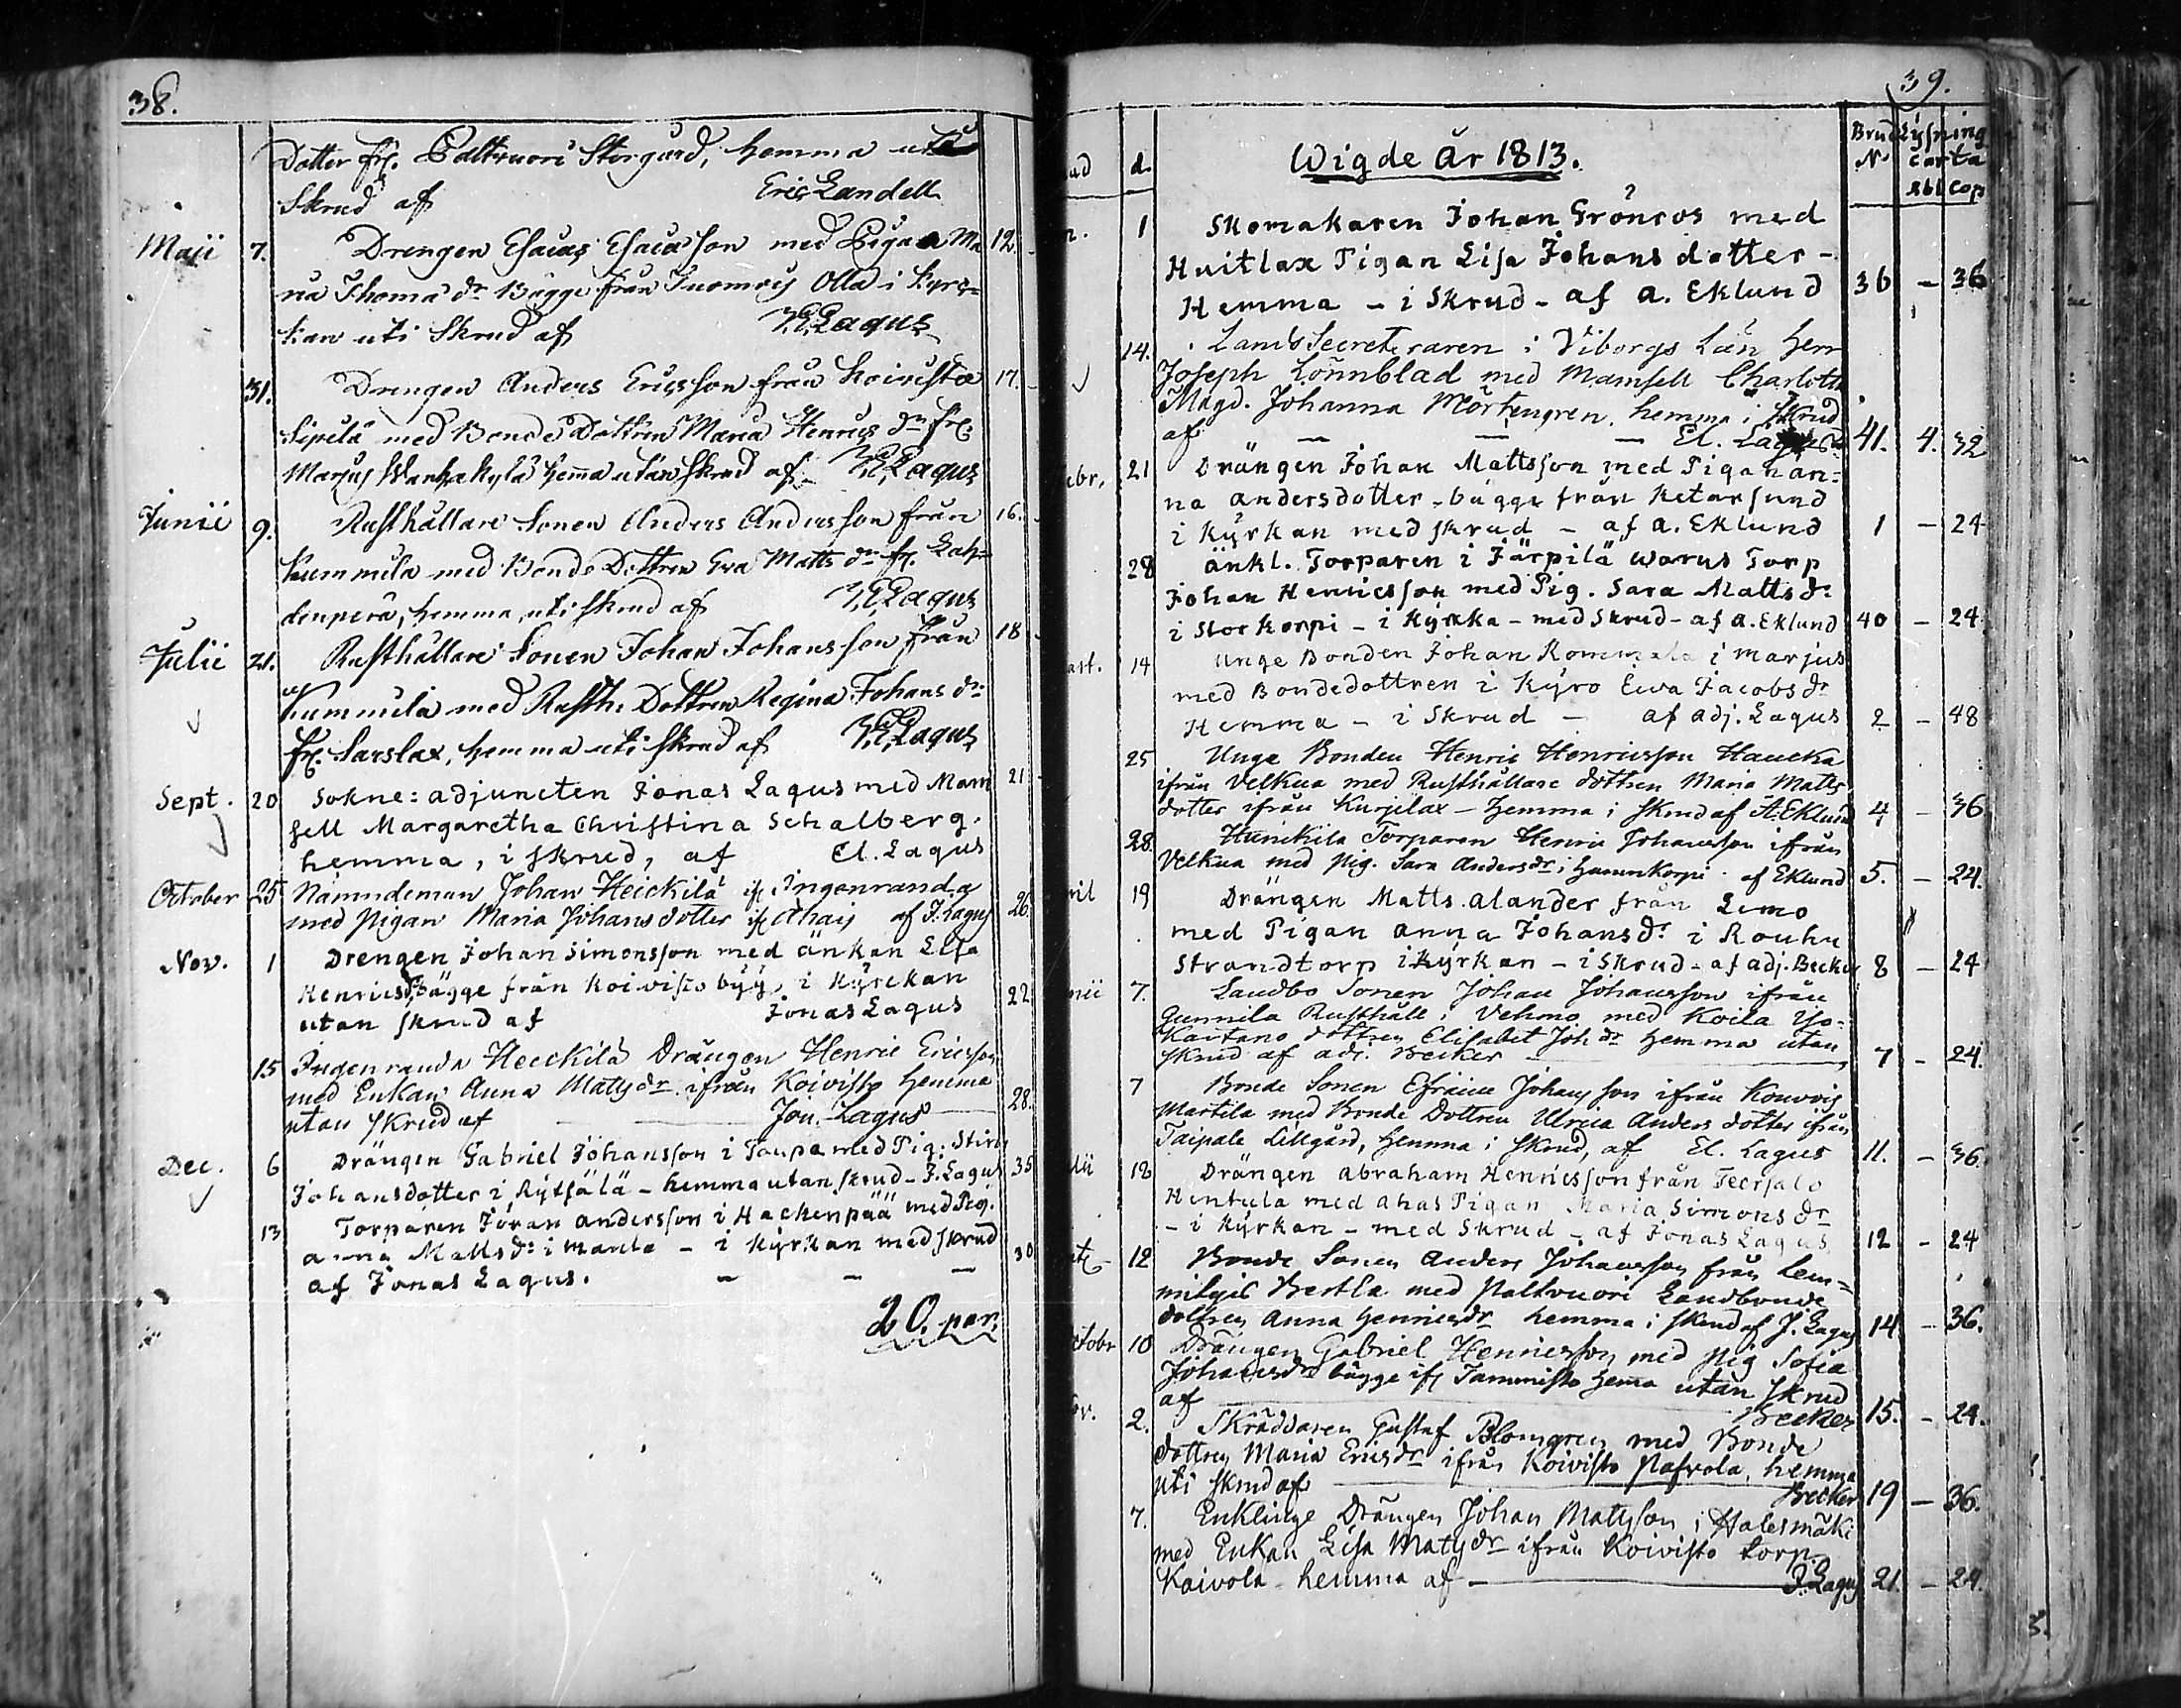 38.
Dotter frå. Paltvuori Storgård, hemma utan
Skrud af Eric Landell
Maji 7. Drengen Esaias Esaiasson med Pigan Ma 12.
ria Thomae dr Bägge från Tuomois Olla i Kyrc=
kan uti Skrud af El. Lagus
31. Drengen Anders Ericsson från Koivisto 17.
Sipilä med Bonde Dottren Maria Henrics dr frå.
Marjus Wanhakylä hema utan skrud af El. Lagus
Junii 9. Rusthållare Sonen Anders Andersson från 16.
Kummila med Bonde Dottren Eva Matts dr fr. Lah=
denperä, hemma, uti skrud af El. Lagus
Julii 21. Rusthållare Sonen Johan Johansson från 18
Kummila med Rusth. Dottren Regina Johans dr
fr. Sarslax, hemma uti skrud af El. Lagus
Sept. 20 Sokne: adjuncten Jonas Lagus med Mam 21
sell Margaretha Christina Schalberg.
hemma, i skrud, af El. Lagus
October 25 Nämndeman Johan Heickilä if Ingenranda
med pigan Maria Johans dotter if Ahais af J. Lagus 26.
Nov. 1 Drengen Johan Simonsson med änkan Lisa
Henricsdr bägge från Koivisto byÿ, i Kÿrckan
utan skrud af Jonas Lagus 22.
15 Ingenranda Heickilä Drängen Henric Ericsson
med Enkan Anna Matts dr ifrån Koivisto hemma
utan skrud af Jon. Lagus 28.
Dec. 6 Drängen Gabriel Johansson i Taupa med Pig. Stina
Johansdotter i Rÿtsälä - hemma utan skrud - J. Lagus 35
13 Torparen Jöran Andersson i Hackenpää med Pig.
anna Matts dr i Manla - i Kÿrkan med skrud
af Jonas Lagus. - - - 30
20. par.
39.
d. Wigde år 1813. Brud Lysning
N. carta
Rbl Cop
1 Skomakaren Johan Grönroos med
Huitlax Pigan Lisa Johans dotter -
Hemma - i Skrud - af a. Eklund 36 - 36
14. Lands Secreteraren i Viborgs Län Herr
Joseph Lönnblad med Mamsell Charlotta
Magd. Johanna Mörtengren, hemma i Skrud
af - - - El. Lagus 41. 4. 32
21 Drängen Johan Mattsson med Pigan an=
na andersdotter - bägge från Ketarsund
i Kÿrkan med skrud - af a. Eklund 1 - 24
28 änkl. Torparen i Järpilä warus Torp
Johan Henricsson med Pig. Sara Matts dr
i Storkorpi - i Kÿrka - med Skrud - af a. Eklund 40 - 24
14 Unge Bonden Johan Rommala i Marjus
med Bondedottren i Kÿro Ewa Jacobs dr
Hemma - i Skrud - af adj. Lagus 2 - 48
25 Unge Bonden Henric Henricsson Haucka
ifrån Velkua med Rusthållare dottren Maria Matts
dotter ifrån Kurjelax - hemma i skrud af A. Eklund 4 - 36
28. Hunikila Torparen Henric Johansson ifrån
Velkua med pig. Sara Anders dr i Hammkorpi af Eklund 5. - 24.
19 Drängen Matts alander från Lemo
med Pigan anna Johans dr i Rouhu
Strandtorp i Kÿrkan - i Skrud - af adj. Becker 8 - 24
7. Landbo Sonen Johan Johansson ifrån
Gunnila Rusthåll i Vehmo med Koila Yo=
Kartano dottren Elisabet Joh dr hemma utan
skrud af adj. Becker 7 - 24.
7 Bonde Sonen Efraim Johansson ifrån Kouvois
Martila med Bonde Dottren Ulrica Anders dotter ifrån
Taipale Lillgård, hemma i skrud, af El. Lagus 11. - 36.
18 Drängen abraham Henricsson från Teersalo
Hentula med ahas Pigan Maria Simons dr
- i Kÿrkan - med Skrud - af Jonas Lagus 12 - 24
12 Bonde Sonen Anders Johansson från Lem=
milgis Bertla med Paltvuori Landbonde
dottren Anna Henricsdr hemma i skrud af J. Lagus 14 - 36.
10 Drängen Gabriel Henricsson med pig Sofia
Johansdr bägge if Tammisto hema utan skrud
af Becker 15. - 24.
2. Skräddaren Gustaf Blomgren med Bonde
dottren Maria Ericsdr ifrån Koivisto Pafvola, hemma
uti skrud af Becker 19 - 36.
7. Enklinge Drängen Johan Mattsson i Halesmäki
med Enkan Lisa Matts dr ifrån Koivisto torp.
Koivola - hemma af - J. Lagus 21. - 24.